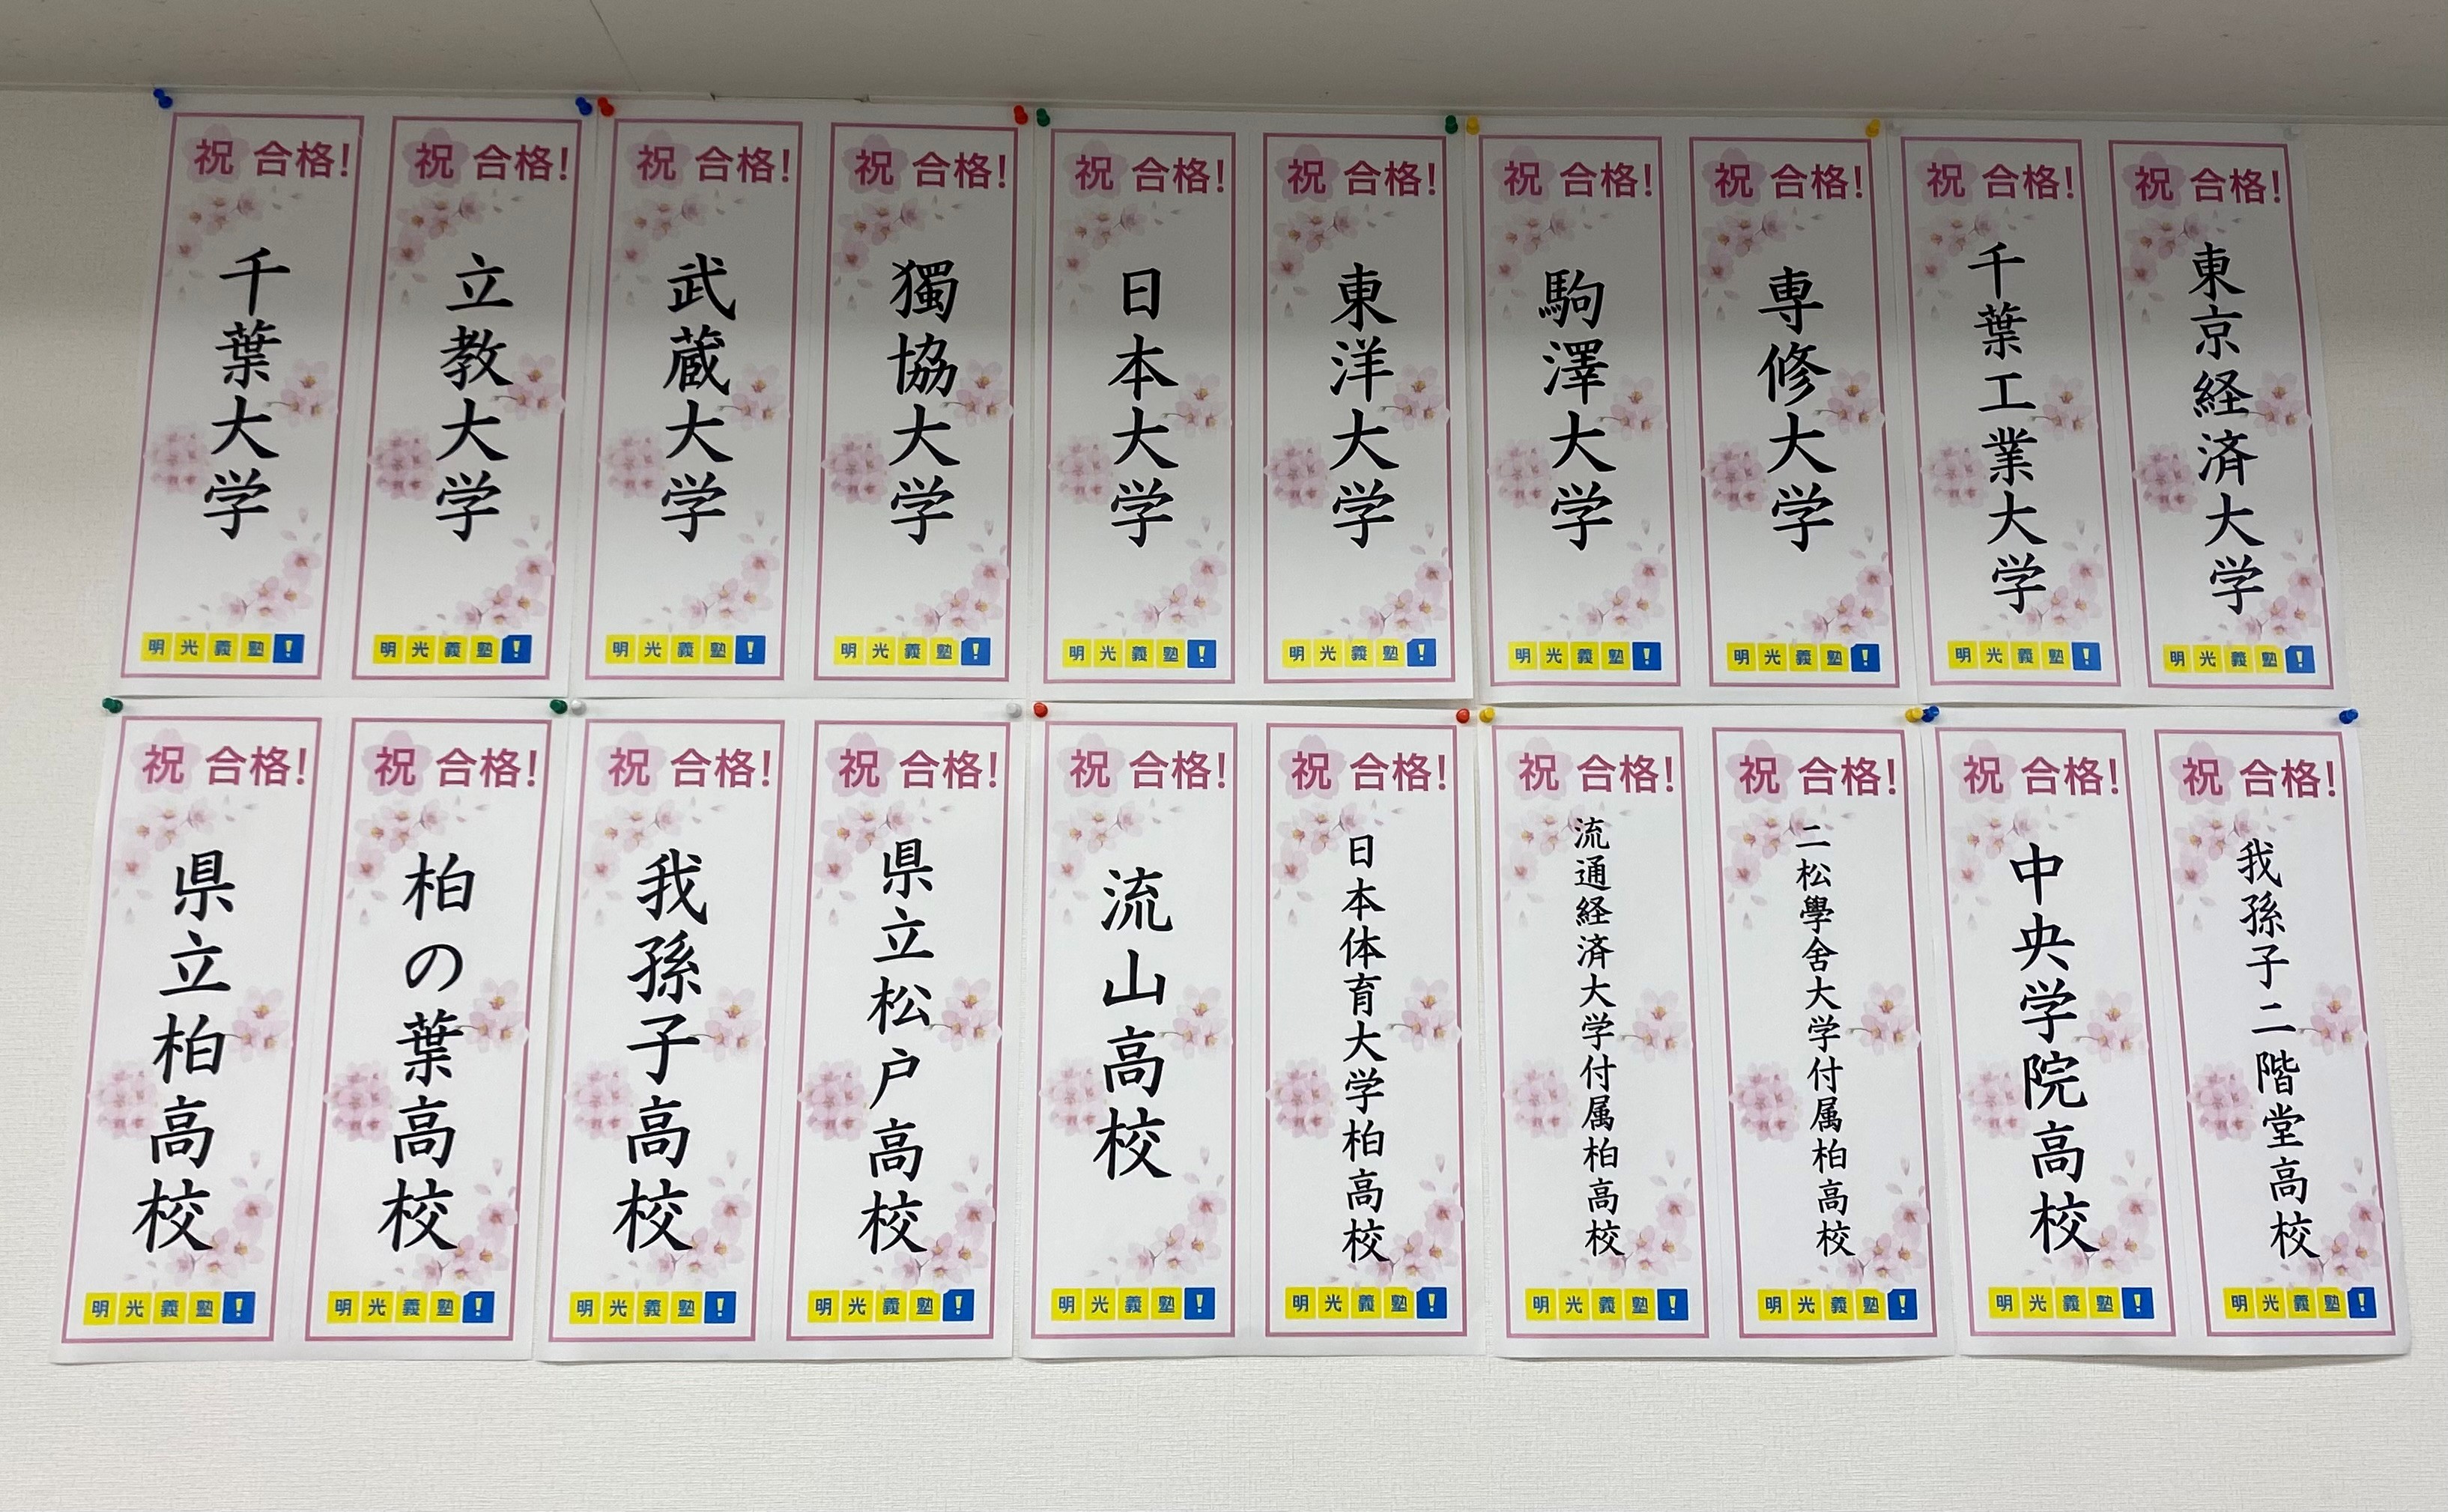 祝 合格!
千葉大学
明光義塾!
祝 合格!
立教大学
明光義塾!
祝 合格!
武蔵大学
明光義塾!
祝 合格!
獨協大学
明光義塾!
祝 合格!
日本大学
明光義塾!
祝 合格!
東洋大学
明光義塾!
祝 合格!
駒澤大学
明光義塾!
祝 合格!
専修大学
明光義塾!
祝 合格!
千葉工業大学
明光義塾!
祝 合格!
東京経済大学
明光義塾!
祝 合格!
県立柏高校
明光義塾!
祝 合格!
柏の葉高校
明光義塾!
祝 合格!
我孫子高校
明光義塾!
祝 合格!
県立松戸高校
明光義塾!
祝 合格!
流山高校
明光義塾!
祝 合格!
日本体育大学柏高校
明光義塾!
祝 合格!
流通経済大学付属柏高校
明光義塾!
祝 合格!
二松學舍大学付属柏高校
明光義塾!
祝 合格!
中央学院高校
明光義塾!
祝 合格!
我孫子二階堂高校
明光義塾!